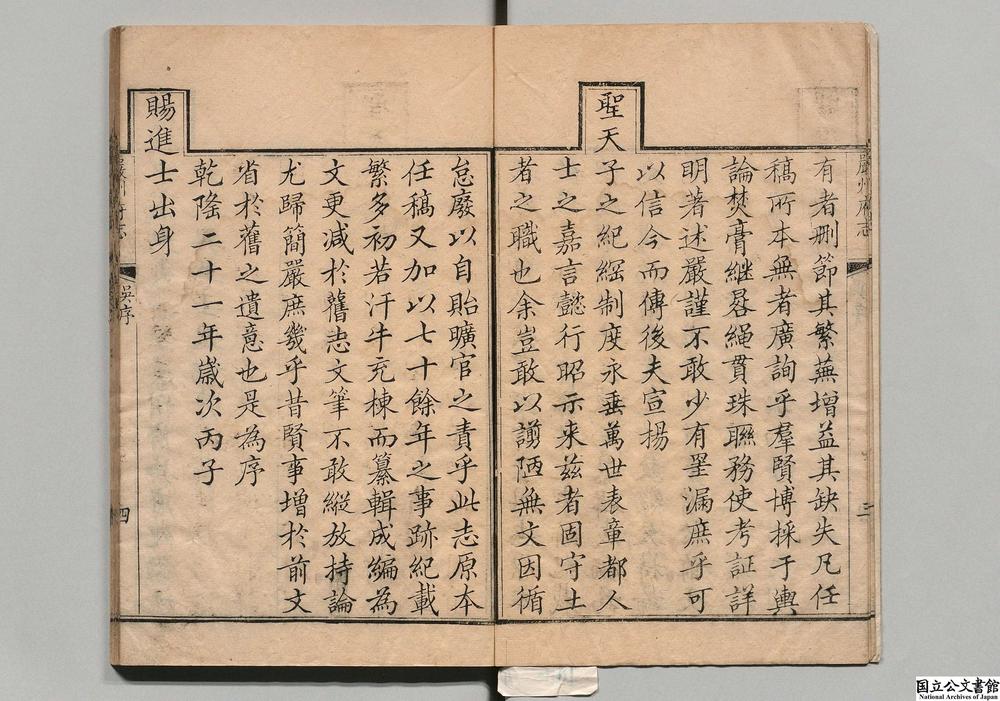 有者刪節其繁蕪增益其缺失凡任
稿所本無者廣詢乎羣賢博採于輿
論焚膏継晷繩貫珠聮務使考証詳
明著述嚴謹不敢少有罣漏庶乎可
以信今而傳後夫宣揚
聖天子之紀綱制度永垂萬世表章都人
士之嘉言懿行昭示来兹者固守土
者之職也余豈敢以謭陋無文因循
怠廢以自貽曠官之責乎此志原本
任稿又加以七十餘年之事跡紀載
繁多初若汗牛充棟而纂輯成編為
文更減於舊志文筆不敢縱放持論
尤歸簡嚴庶幾乎昔賢事増於前文
省於舊之遺意也是為序
乾隆二十一年嵗次丙子
賜進士出身
嚴州府志
三
吳序
四
国立公文書館
National Archives of Japan